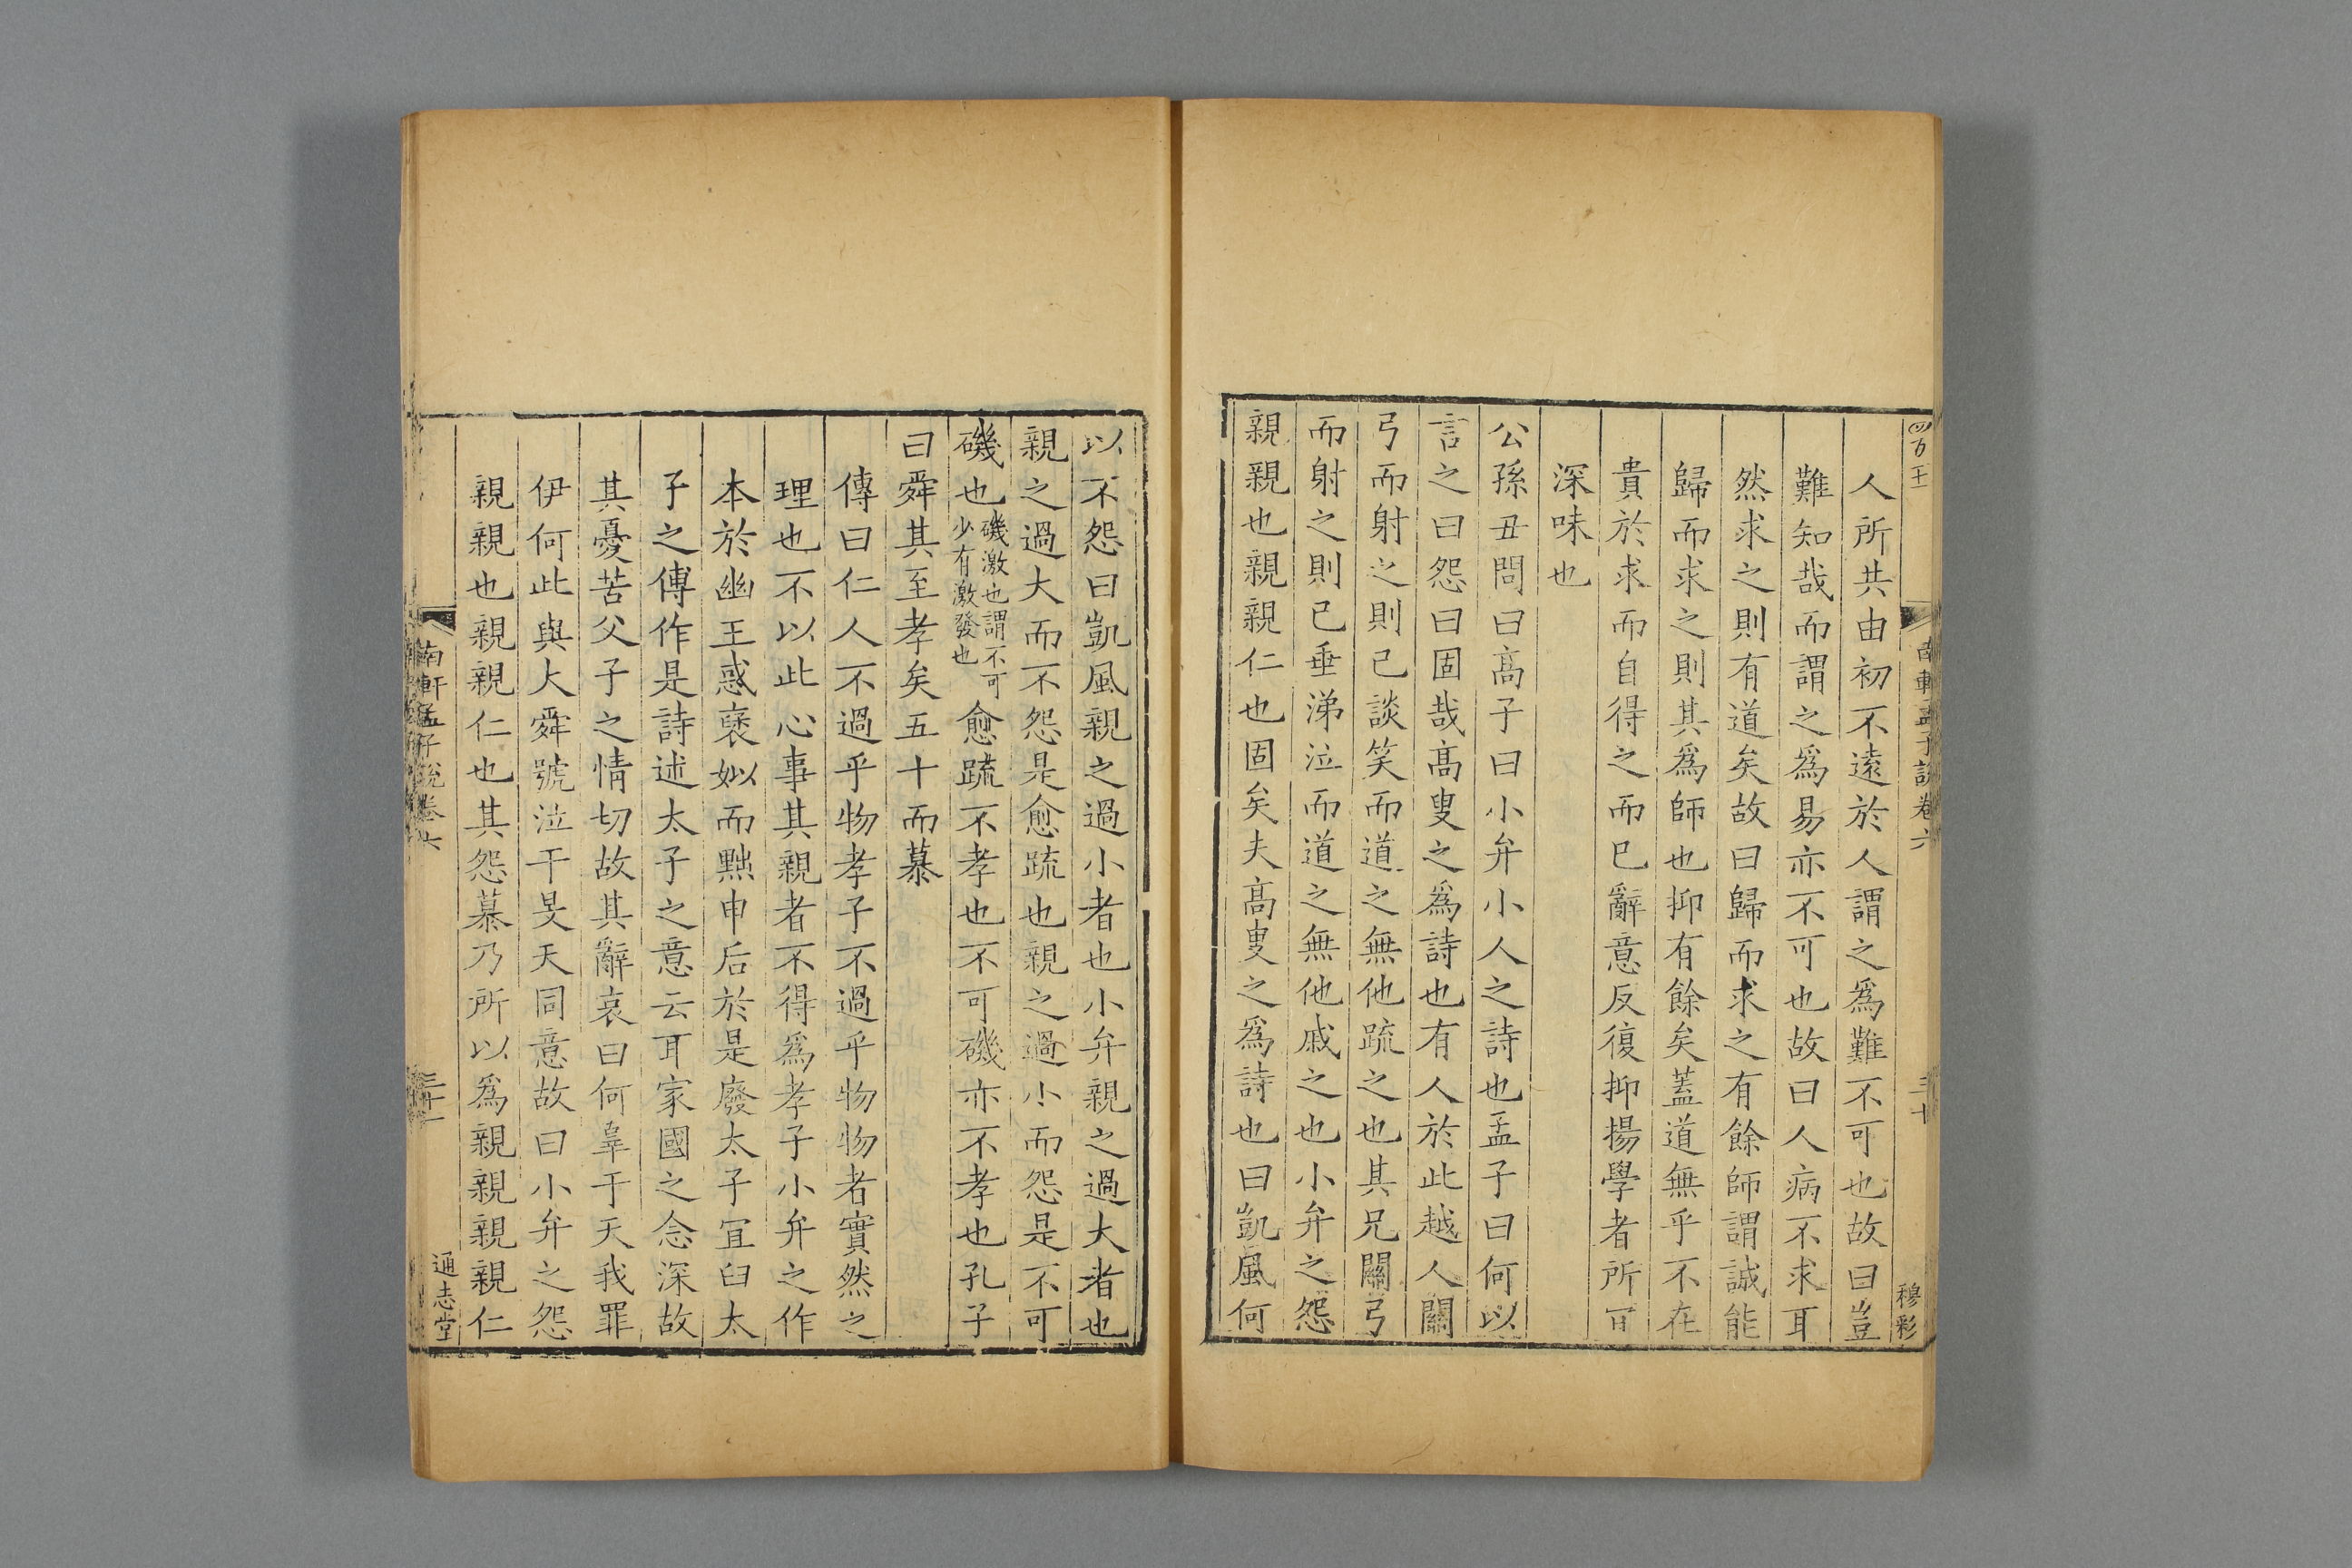 四百十一
南軒孟子說卷六
三十
穆彩
人所共由初不遠於人謂之爲難不可也故曰豈
難知哉而謂之爲易亦不可也故曰人病不求耳
然求之則有道矣故曰歸而求之有餘師謂誠能
歸而求之則其爲師也抑有餘矣蓋道無乎不在
貴於求而自得之而已辭意反復抑揚學者所
深味也
公孫丑問曰髙子曰小弁小人之詩也孟子曰何以
言之曰怨曰固哉髙叟之爲詩也有人於此越人關
弓而射之則己談笑而道之無他疏之也其兄關弓
而射之則己垂涕泣而道之無他戚之也小弁之怨
親親也親親仁也固矣夫髙叟之爲詩也曰凱風何
以不怨曰凱風親之過小者也小弁親之過大者也
親之過大而不怨是愈疏也親之過小而怨是不可
磯也磯激也謂不可少有激發也愈疏不孝也不可磯亦不孝也孔子
曰舜其至孝矣五十而慕
傳曰仁人不過乎物孝子不過乎物物者實然之
理也不以此心事其親者不得爲孝子小弁之作
本於幽王惑褒姒而黜申后於是廢太子宜臼太
子之傅作是詩述太子之意云耳家國之念深故
其憂苦父子之情切故其辭哀曰何辠于天我罪
伊何此與大舜號泣于旻天同意故曰小弁之怨
親親也親親仁也其怨慕乃所以爲親親親親仁
南軒孟子說卷六
三十一
通志堂